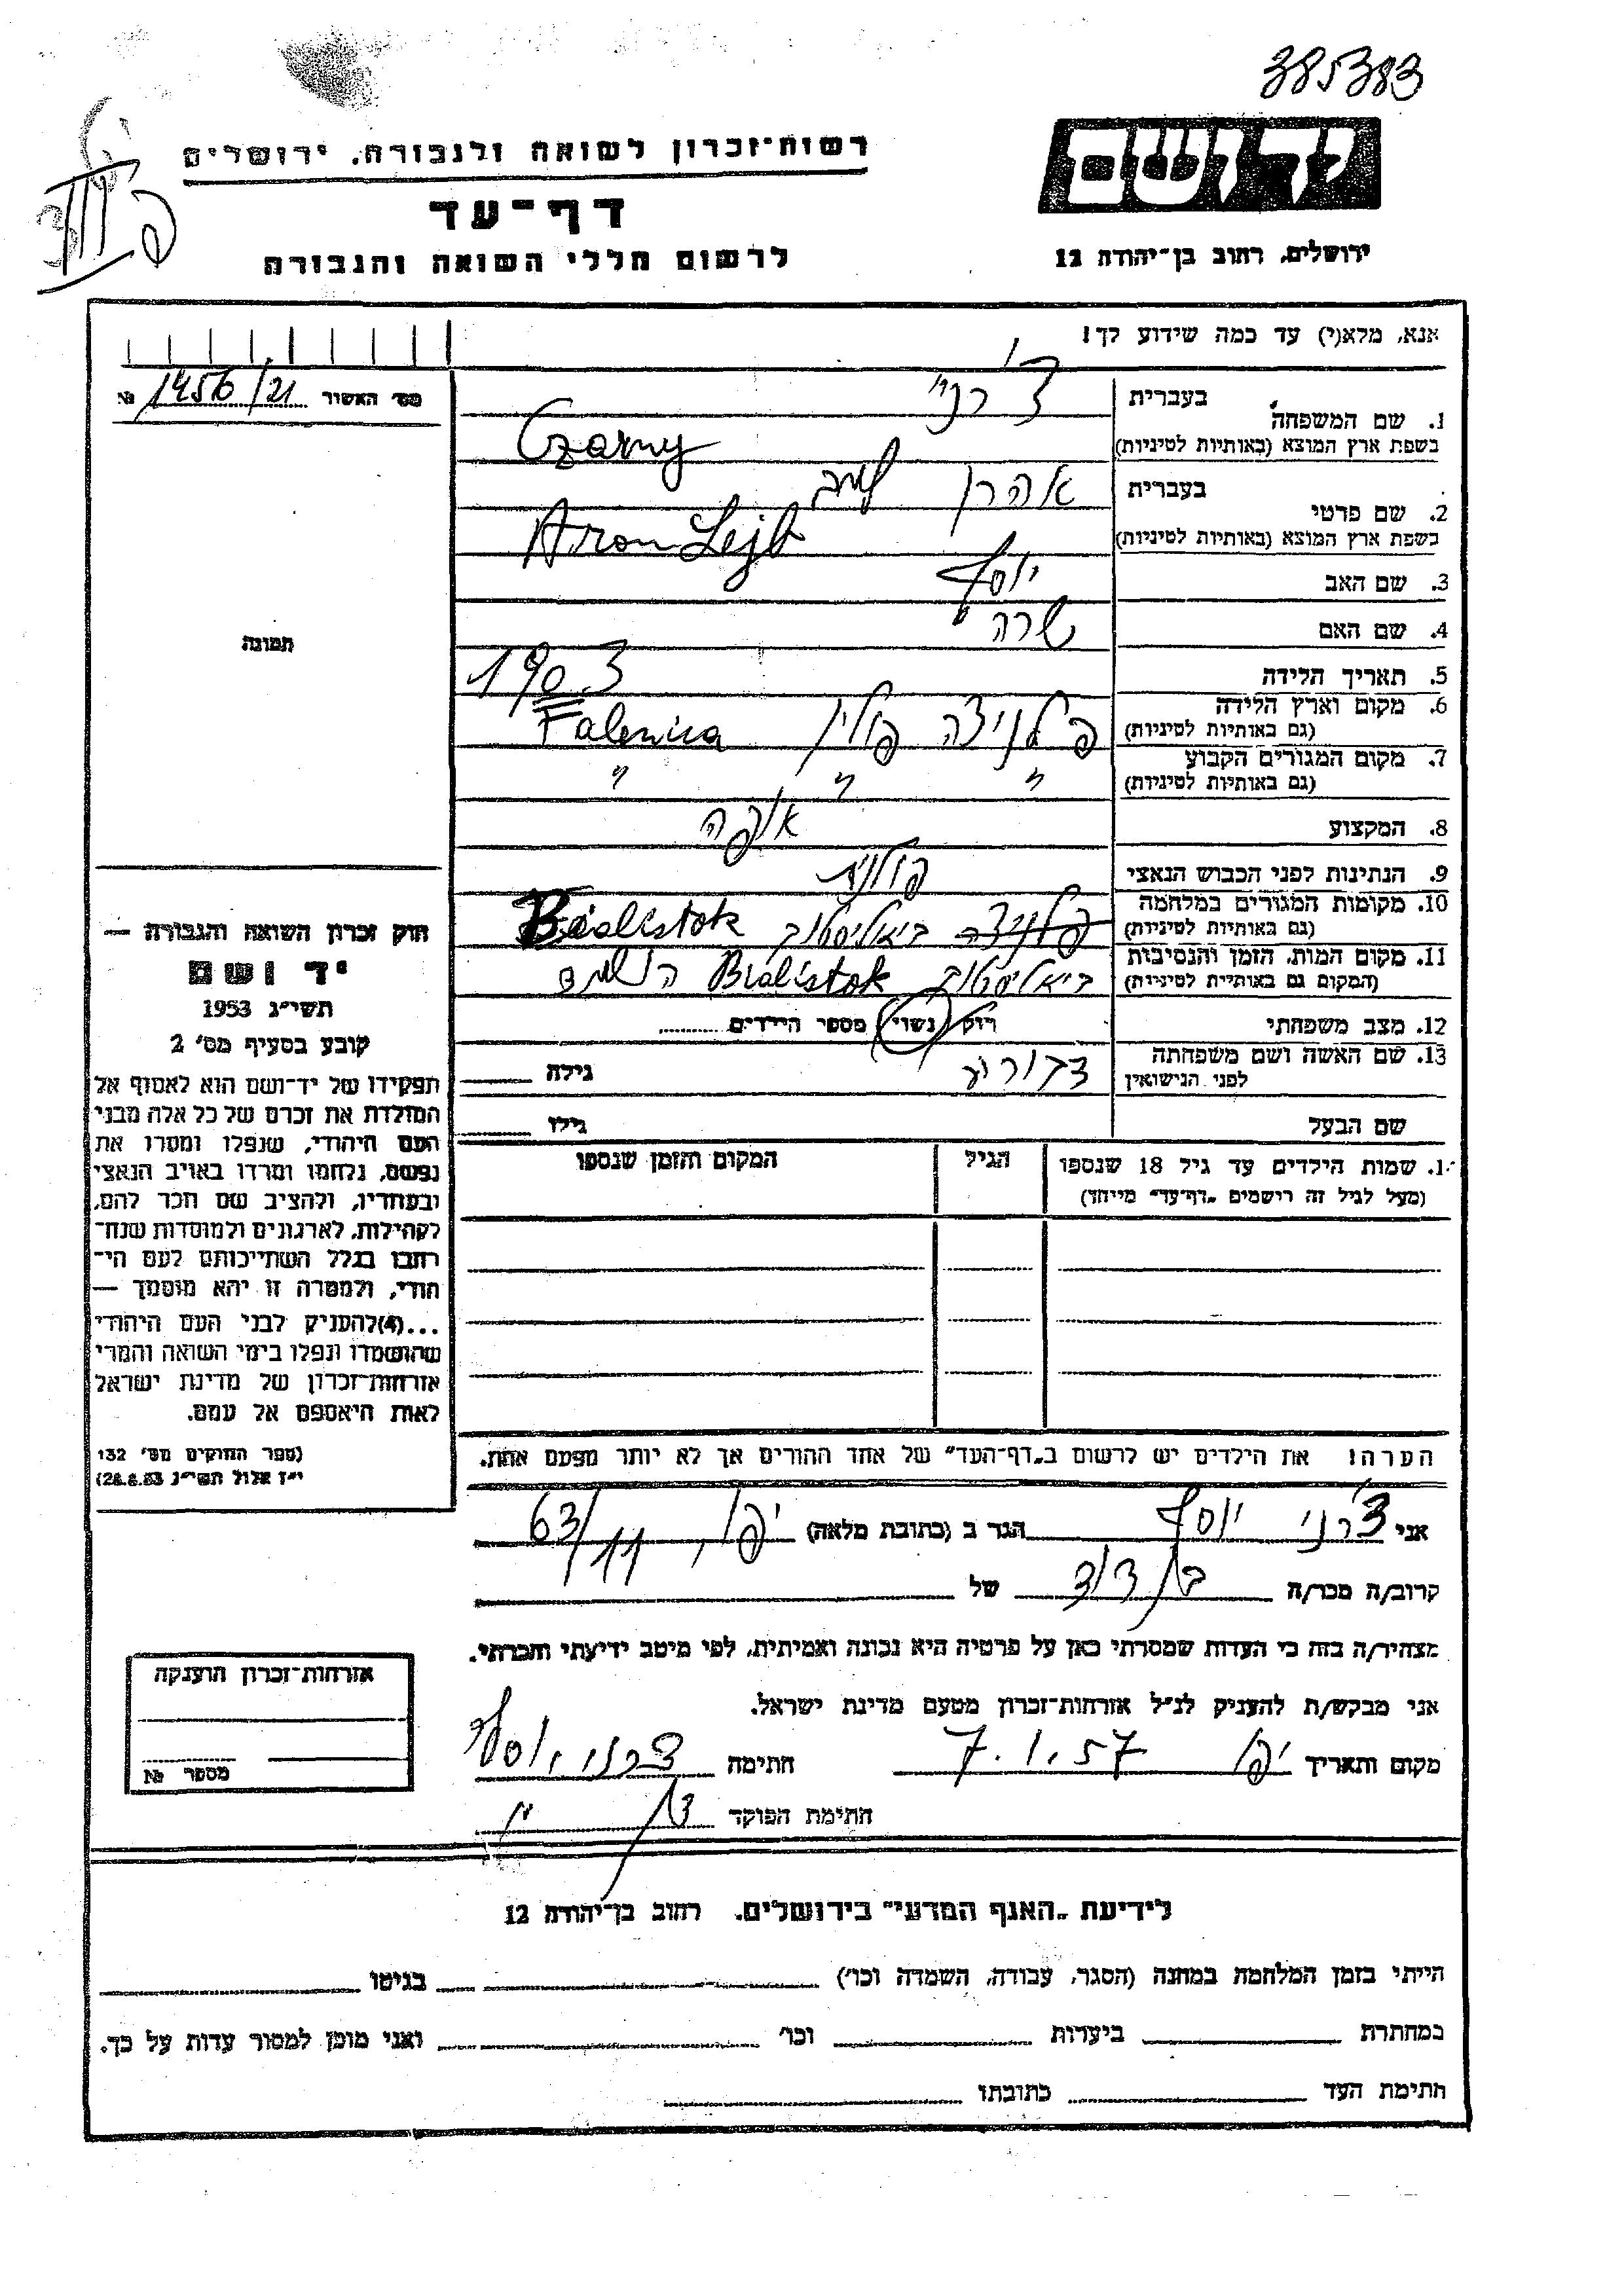 385383
יד ושם
רשות-זכרון לשואה ולגבורה, ירושלים
דף-עד
לרשום חללי השואה והגבורה
ירושלים, רחוב בן-יהודה 12
אנא, מלא(י) עד כמה שידוע לך!
מס׳ האשור 1456/21 №
1. שם המשפחה בעברית צ׳רני
בשפת ארץ המוצא (באותיות לטיניות) Czarny
2. שם פרטי בעברית אהרן לייב
בשפת ארץ המוצא (באותיות לטיניות) Aron Lejb
3. שם האב יוסף
4. שם האם שרה
5. תאריך הלידה 1903
6. מקום וארץ הלידה (גם באותיות לטיניות) פלניצה פולין Falenica
7. מקום המגורים הקבוע (גם באותיות לטיניות) " " "
8. המקצוע אופה
9. הנתינות לפני הכבוש הנאצי פולנית
10. מקומות המגורים במלחמה (גם באותיות לטיניות) פלניצה ביאליסטוק Bialistok
11. מקום המות, הזמן והנסיבות (המקום גם באותיות לטיניות) ביאליסטוק Bialistok
12. מצב משפחתי רווק / נשוי מספר הילדים
13. שם האשה ושם משפחתה לפני הנישואין גילה
שם הבעל גילו
שמות הילדים עד גיל 18 שנספו (מעל לגיל זה רישמים „דף-עד״ מיוחד) הגיל המקום והזמן שנספו
תמונה
חוק זכרון השואה והגבורה —
יד ושם
תשי״ג 1953
קובע בסעיף מס׳ 2
תפקידו של יד-ושם הוא לאסוף אל
המולדת את זכרם של כל אלה מבני
העם היהודי, שנפלו ומסרו את
נפשם, נלחמו ומרדו באויב הנאצי
ובעוזריו, ולהציב שם וזכר להם,
לקהילות, לארגונים ולמוסדות שנח-
רבו בגלל השתייכותם לעם הי-
הודי, ולמטרה זו יהא מוסמך —
...(4)להעניק לבני העם היהודי
שהושמדו ונפלו בימי השואה והמרי
אזרחות-זכרון של מדינת ישראל
לאות היאספם אל עמם.
(ספר החוקים מס׳ 132
י״ז אלול תשי״ג 28.8.53)
הערה! את הילדים יש לרשום ב„דף-העד״ של אחד ההורים אך לא יותר מפעם אחת.
אני צ׳רני יוסף הגר ב (כתובת מלאה) יפו, 63/11
קרוב/ה מכר/ה בן דוד של
מצהיר/ה בזה כי העדות שמסרתי כאן על פרטיה היא נכונה ואמיתית, לפי מיטב ידיעתי והכרתי.
אני מבקש/ת להעניק לנ״ל אזרחות-זכרון מטעם מדינת ישראל.
מקום ותאריך יפו 7.1.57 חתימה צרני יוסף
חתימת הפוקד
אזרחות-זכרון הוענקה
מספר №
לידיעת „האגף המדעי״ בירושלים, רחוב בן-יהודה 12
הייתי בזמן המלחמה במחנה (הסגר, עבודה, השמדה וכו׳) בגיטו
במחתרת ביערות וכו׳ ואני מוכן למסור עדות על כך.
חתימת העד כתובתו